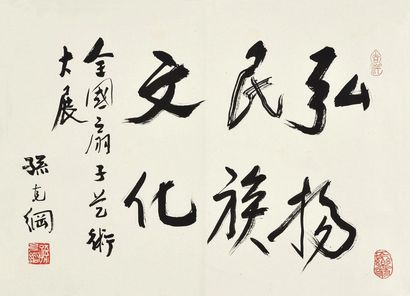 弘扬
民族
文化
全國扇子艺術
大展
孫克綱